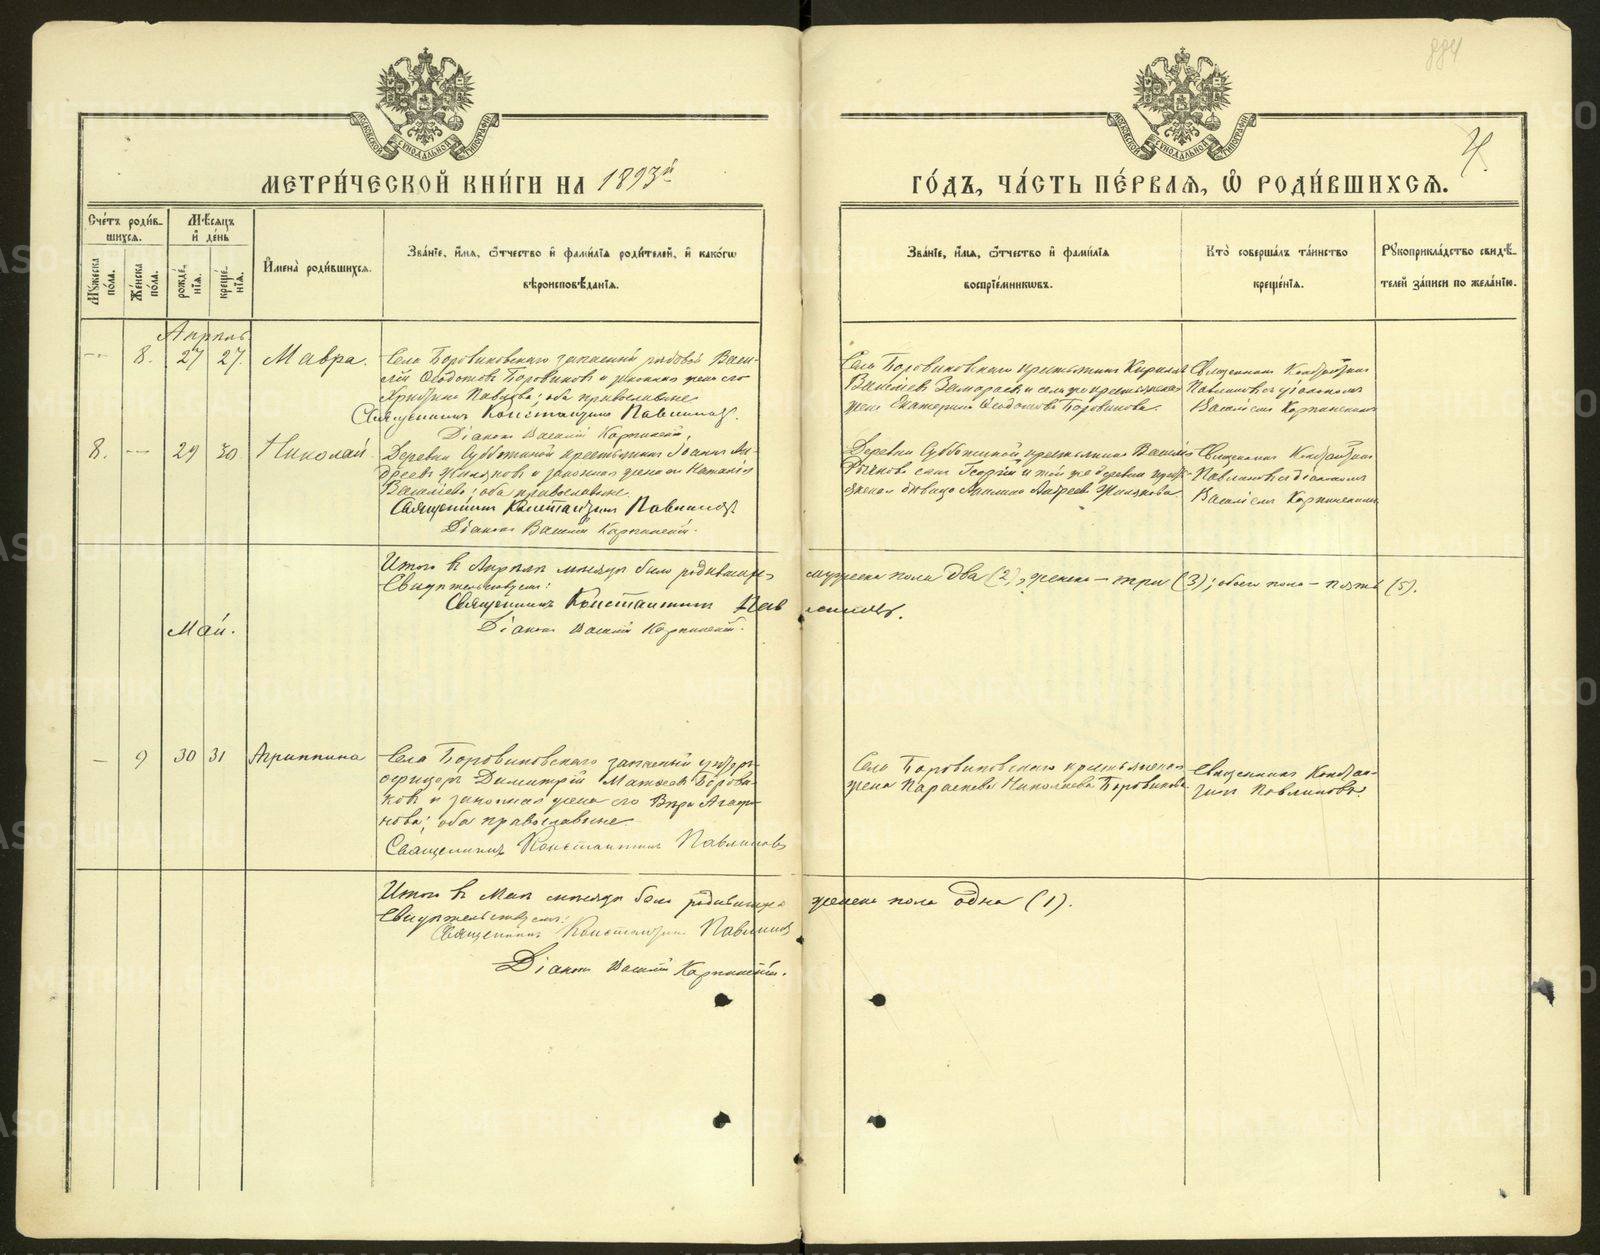 884
4.
МОСКОВСКОЙ СѴНОДАЛЬНОЙ ТИПОГРАФІИ
МОСКОВСКОЙ СѴНОДАЛЬНОЙ ТИПОГРАФІИ
МЕТРИ́ЧЕСКОЙ КНИ́ГИ НА 1893й
ГО́ДЪ, ЧА́СТЬ ПЕ́РВАЯ, Ѽ РОДИ́ВШИХСЯ.
Сче́тъ роди́в-
шихся.
Мѣ́сяцъ
и҆ де́нь
Мꙋ́жеска по́ла.
Же́нска по́ла.
рожде́нїѧ.
креще́нїѧ.
И҆мена̀ роди́вшихся.
Зва́нїе, и҆́мя, ѻ҆́тчество и҆ фами́лїя роди́телей, и҆ како́гѡ
вѣроисповѣ́данїя.
Зва́нїе, и҆́мя, ѻ҆́тчество и҆ фами́лїя
воспрїе́мникѡвъ.
Кто̀ соверша́лъ та́инство
креще́нїя.
Рꙋкоприкла́дство свидѣ́-
телей за́писи по жела́нїю.
Апрѣль
— 8. 27 27. Мавра.
Села Боровиковскаго запасный рядовой Васи-
лій Ѳеодотовъ Боровиковъ и законная жена его
Христина Павлова; оба православные.
Священникъ Константинъ Павлиновъ.
Діаконъ Василій Карпинскій.
Села Боровиковскаго крестьянинъ Кириллъ
Васильевъ и села того крестьянская
жена Екатерина Ѳеодотова Боровикова.
Священникъ Константинъ
Павлиновъ съ діакономъ
Василіемъ Карпинскимъ
8. — 29 30. Николай.
Деревни Субботиной крестьянинъ Іоаннъ Ан-
дреевъ и законная жена его Наталія
Васильева; оба православные.
Священникъ Константинъ Павлиновъ.
Діаконъ Василій Карпинскій.
Деревни Субботиной крестьянина Василія
сынъ Георгій и той же деревни крестья-
нская дѣвица Андреева
Священникъ Константинъ
Павлиновъ съ діакономъ
Василіемъ Карпинскимъ
Итого въ Апрѣлѣ мѣсяцѣ было родившихся мужеска пола два (2), женска — три (3); обоего пола — пять (5).
Свидѣтельствуемъ:
Священникъ Константинъ Павлиновъ.
Діаконъ Василій Карпинскій.
Май.
— 9 30 31 Агриппина
Села Боровиковскаго запасный унтеръ-
офицеръ Димитрій Матѳеевъ Борови-
ковъ и законная жена его Вѣра Агаѳо-
нова; оба православные.
Священникъ Константинъ Павлиновъ
Села Боровиковскаго крестьянская
жена Параскева Николаева Боровикова
Священникъ Констан-
тинъ Павлиновъ.
Итого въ Маѣ мѣсяцѣ было родившихся женска пола одна (1).
Свидѣтельствуемъ:
Священникъ Константинъ Павлиновъ
Діаконъ Василій Карпинскій.